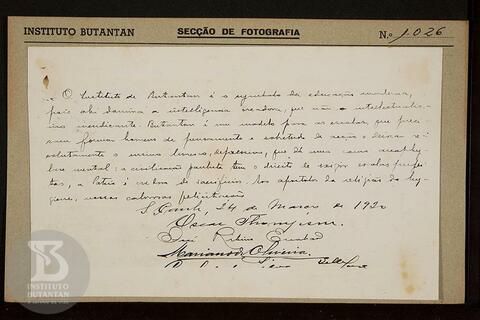 INSTITUTO BUTANTAN
SECÇÃO DE FOTOGRAFIA
N.o 1.026
O Instituto de Butantan é o symbolo da educação moderna,
pois ahi domina a intelligencia creadora, que não o intellectualis-
mo mendicante. Butantan é um modelo para as escolas que preci-
sam formar homens de pensamento e sobretudo de acção e deixar re-
solutamente o ensino livresco, depressivo, que dá uma
mental: a civilização paulista tem o direito de exigir escolas perfei-
tas, a Patria é credora do sacrificio. Aos apostolos da religião da hy-
giene, nossas calorosas felicitações
S. Paulo, 24 de Março de 1920
Oscar Thompson
José Ribeiro Escobar
Mariano de Oliveira
Silva
INSTITUTO
BUTANTAN